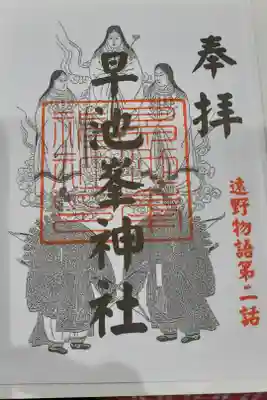 奉拝
早池峯神社
遠野物語第二話